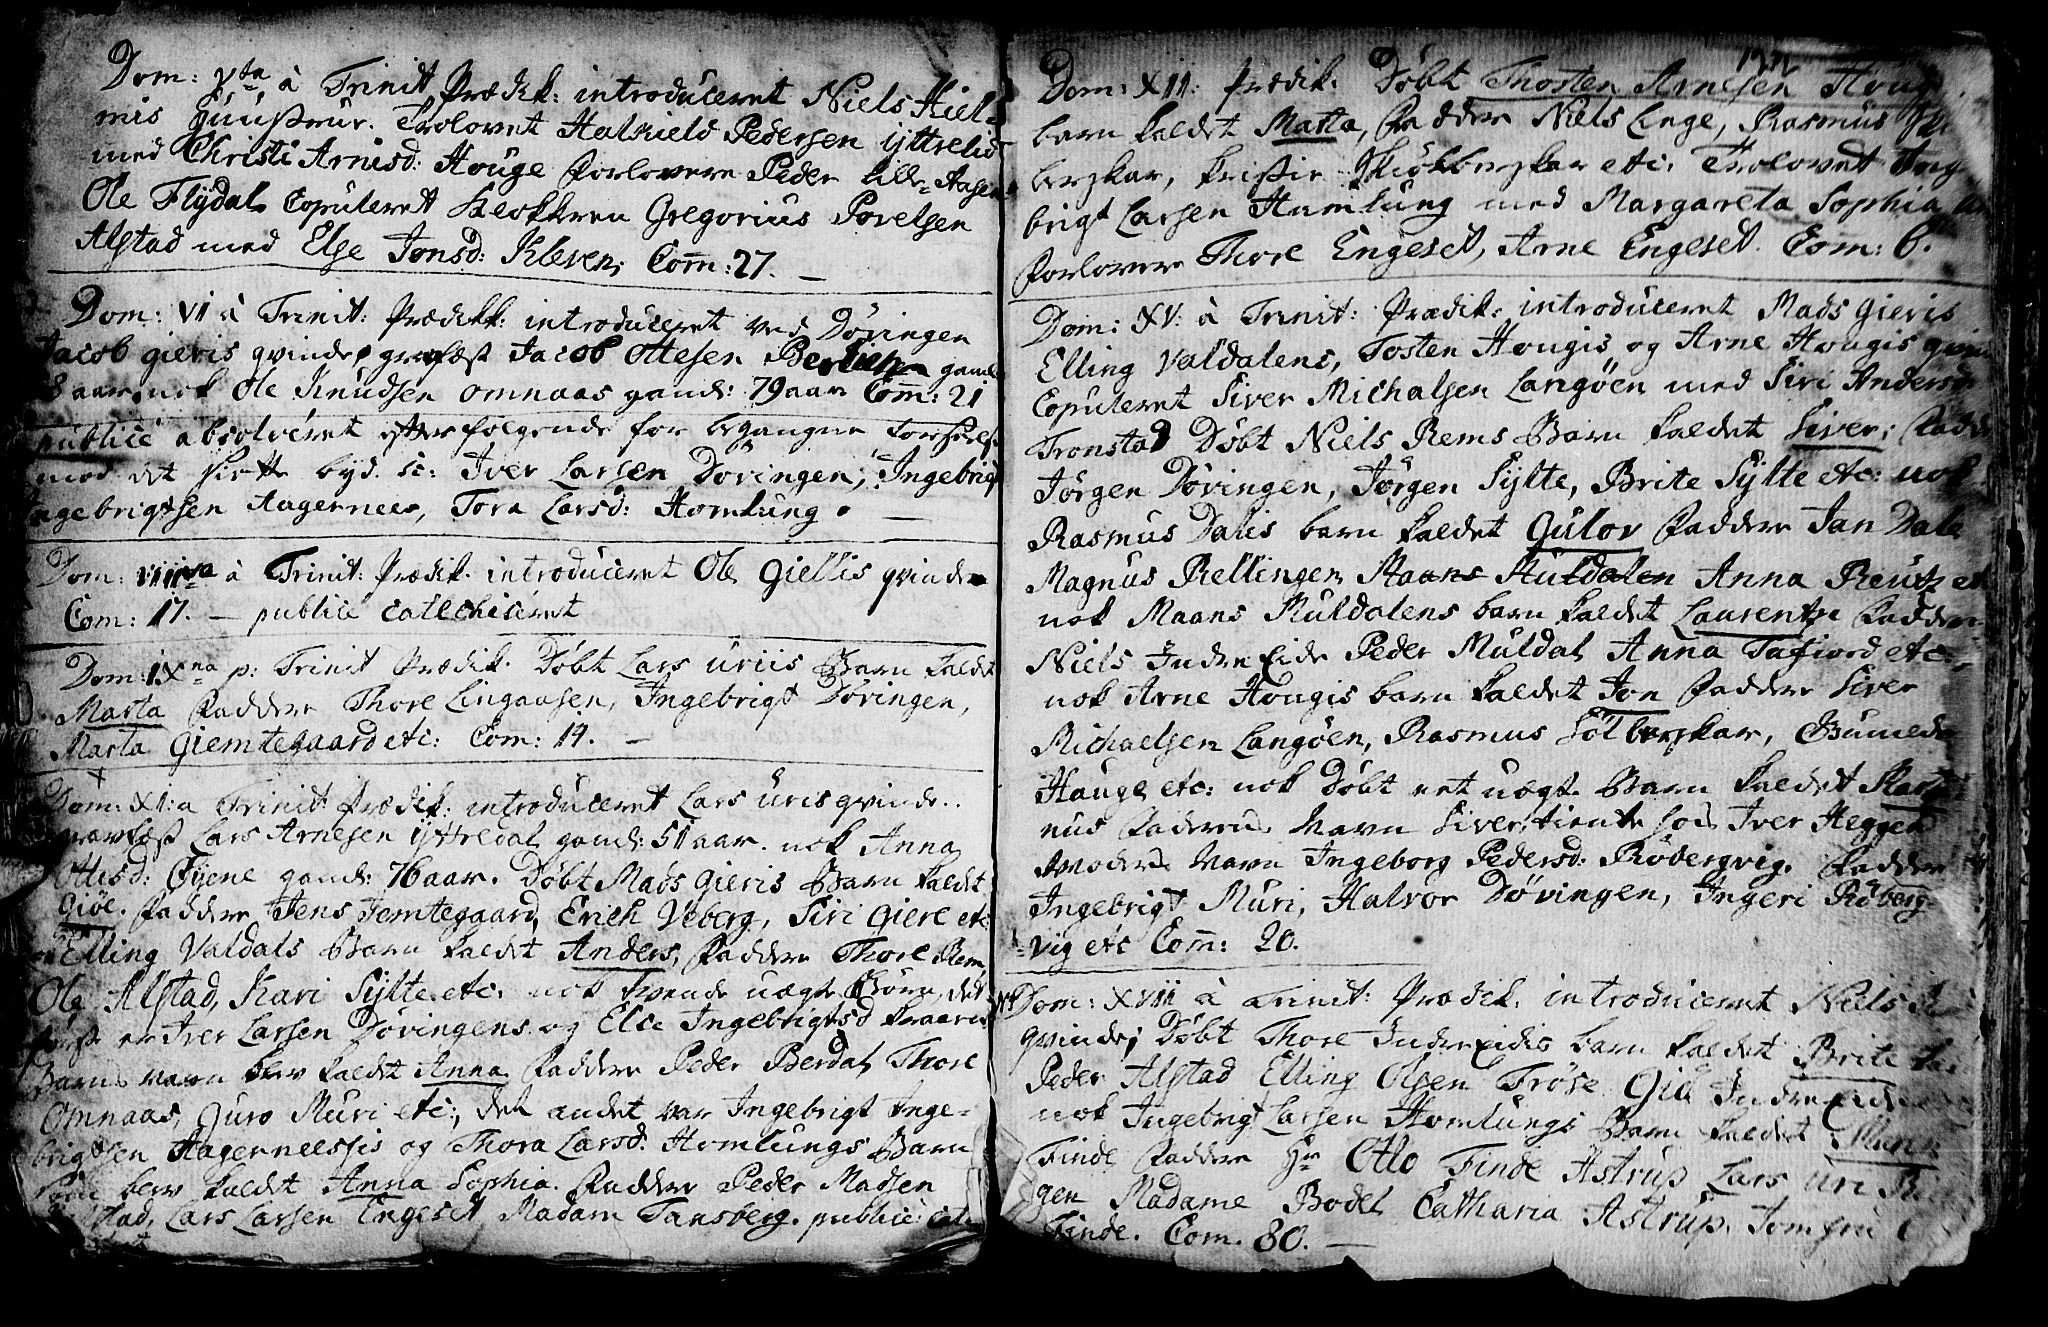 Dom: Vta à Trinit Prædik: introduceret Niels Kiel-
mis Huustrue. Trolovet Halkield Pedersen Yttrelid
med Christi Arnisd: Houge Forlovere Peder Lille-Aasen
Ole Flydal. Copuleret Klokkren Gregorius Povelsen
Alstad med Else Jonsd: Kleven; Com̄: 27. —
Dom: VI à Trinit: Prædikk: introduceret ved Döringen
Jacob Gieris qvinde, græfæst Jacob Ottesen gaml
8 aar, nok Ole Knudsen Omnaas gaml: 79 aar Com̄: 21
publicè absolveret efterfølgende for begangne
mod det siette byd. sc: Iver Larsen Dövingen, Ingebrigt
Ingebrigtsen Hagernees, Tora Larsd: Homlung. —
Dom: VIIIva à Trinit: Prædik. introduceret Ole Giellis qvinde
Com: 17. — publicè catechiseret
Dom: IXna p: Trinit Prædik. Döbt Lars Uriis Barn kaldet
Marta Faddere Thore Lingaasen, Ingebrigt Dövingen,
Marta Giemtegaard etc: Com: 14. —
Dom: XI: a Trinit Prædik: introduceret Lars Uris qvinde..
græfæst Lars Arnesen Yttredal gaml: 51 aar. nok Anna
Ottisd: Öyene gaml: 76 aar. Döbt Mads Gieris Barn kaldet
Giöe. Faddere Jens Jemtegaard, Erich Veberg, Siri Giere etc:
Elling Valdals Barn kaldet Anders, Faddere Thore Rem
Ole Alstad, Kari Sylte etc: nok tvende uægte Börn, det
förste er Iver Larsen Dövingens og Else Ingebrigtsd
Barns navn blev kaldet Anna Faddere Peder Berdal, Thore
Omnaas, Guro Muri etc:, det andet var Ingebrigt Inge-
brigtsen Hagerneessis og Thora Larsd: Homlungs Barn
som blev kaldet Anna Sophia. Faddere Peder Madsen
Lars Larsen Engeset Madam Tansberg. publicè:
Dom: XII: Prædik. Döbt Thosten Arnesen Houg
barn kaldet Marta, Faddere Niels Linge, Rasmus
berskar, Kristie Skiölberskar etc: Trolovet Inge
brigt Larsen Humlung med Margareta Sophia
Forlovere Thore Engeset, Arne Engeset. Com: 6.
Dom: XV: à Trinit: Prædik: introduceret Mads Gieris
Elling Valdalens, Tosten Hougis og Arne Hougis qvin
Copuleret Siver Michalsen Langöen med Siri Andersd
Tronstad Döbt Niels Rems Barn kaldet Siver; Faddere
Jörgen Dövingen, Jörgen Sylte, Brite Sylte etc: nok
Rasmus Dalis barn kaldet Gulov Faddere Jan Dale
Magnus Rellingen, Maans Muldalen Anna etc
nok Maans Muldalens barn kaldet Laurentze Faddere
Niels Indre Eide Peder Muldal, Anna Tafiord etc:,
nok Arne Hougis barn kaldet Jon Faddere Siver
Michaelsen Langöen, Rasmus Sölberskar,
Hauge etc: nok Döbt eet uægte Barn kaldet
Faderens Navn Siver, tiente hos Iver Heggen
Moderens Navn Ingeborg Pedersd: Röbergvig. Faddere
Ingebrigt Muri, Halvor Dövingen, Ingeri Röberg-
-vig etc Com̄: 20.
Dom: XVII à Trinit: Prædik. introduceret Niels
qvinde; Döbt Thore Indreeidis barn kaldet Brite
Peder Alstad Elling Olsen Tröse Gill Indreeide
nok Ingebrigt Larsen Homlungs Barn kaldet
Finde Faddere Hr Otto Finde Astrup Lars Uri
gen Madame Bodel Catharia Astrup. Jomfru
Finde. Com. 80. —